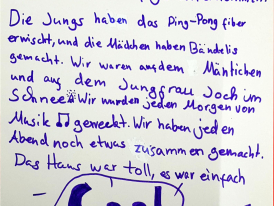 Die Jungs haben das Ping-Pong fiber
erwischt, und die Mädchen haben Bändelis
gemacht. Wir waren auf dem Mäntlichen
und auf dem Jungfrau Joch im
Schnee Wir wurden jeden Morgen von
Musik geweckt. Wir haben jeden
Abend noch etwas zusammen gemacht.
Das Haus war toll, es war einfach
Cool